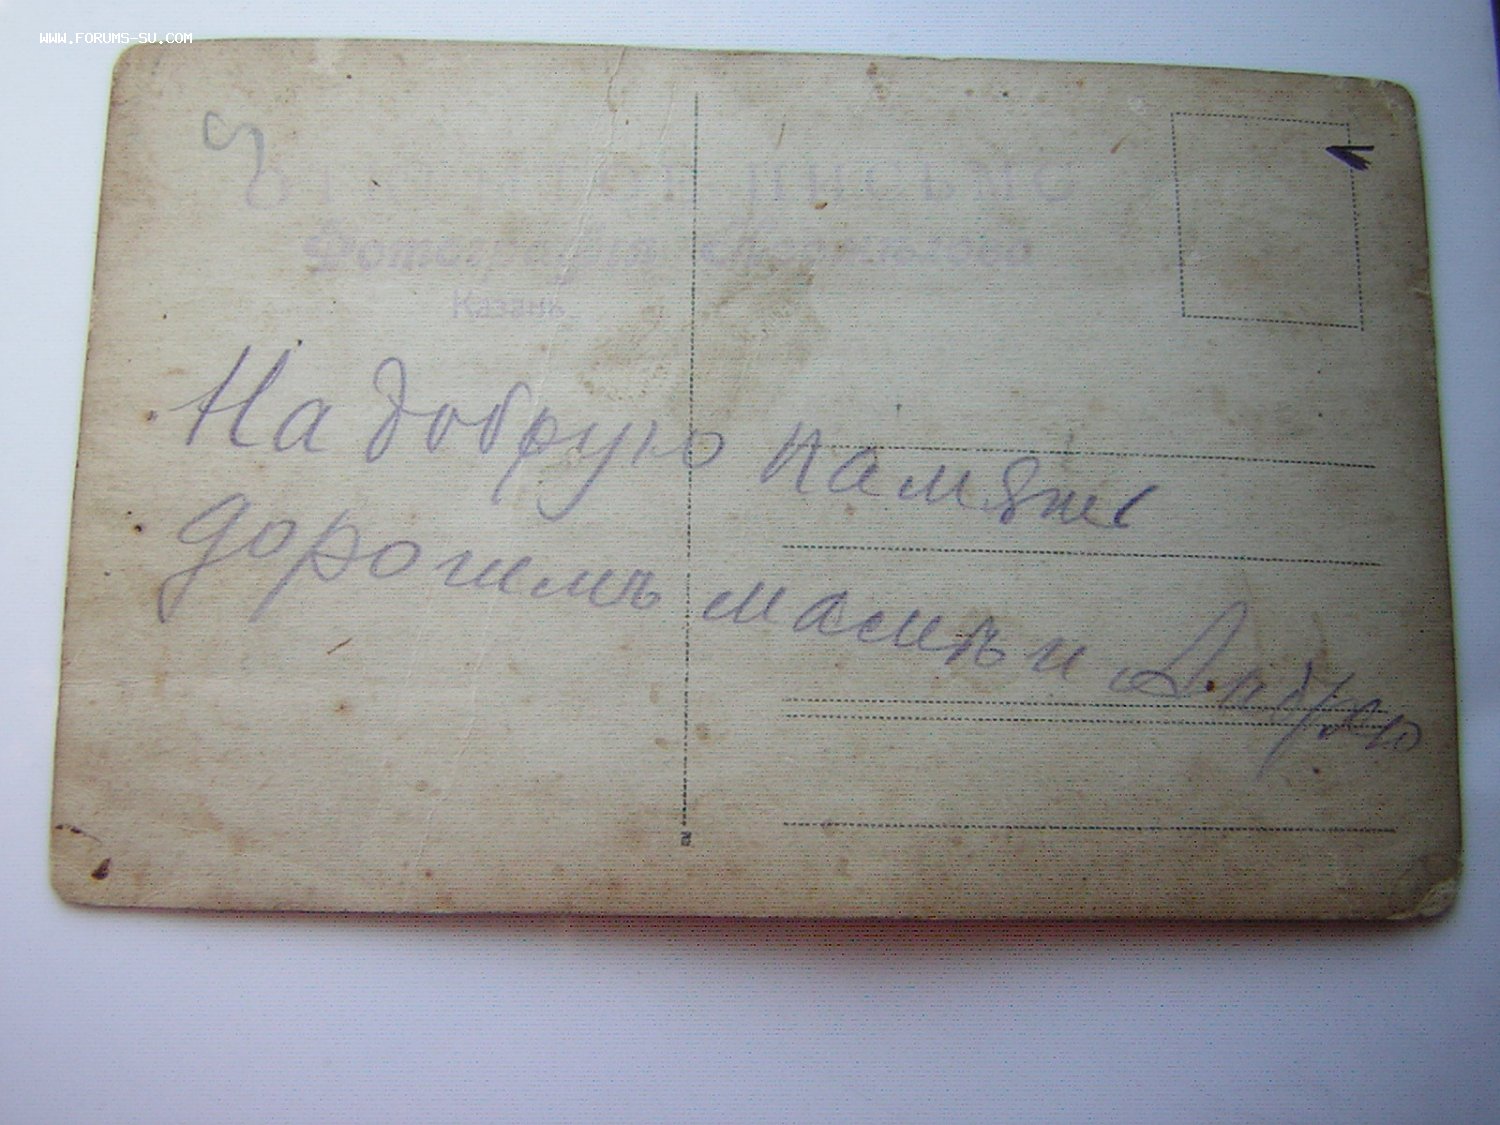 WWW.FORUMS-SU.COM
ОТКРЫТОЕ ПИСЬМО
Фотографія
Казань
На добрую память
дорогимъ мамѣ и